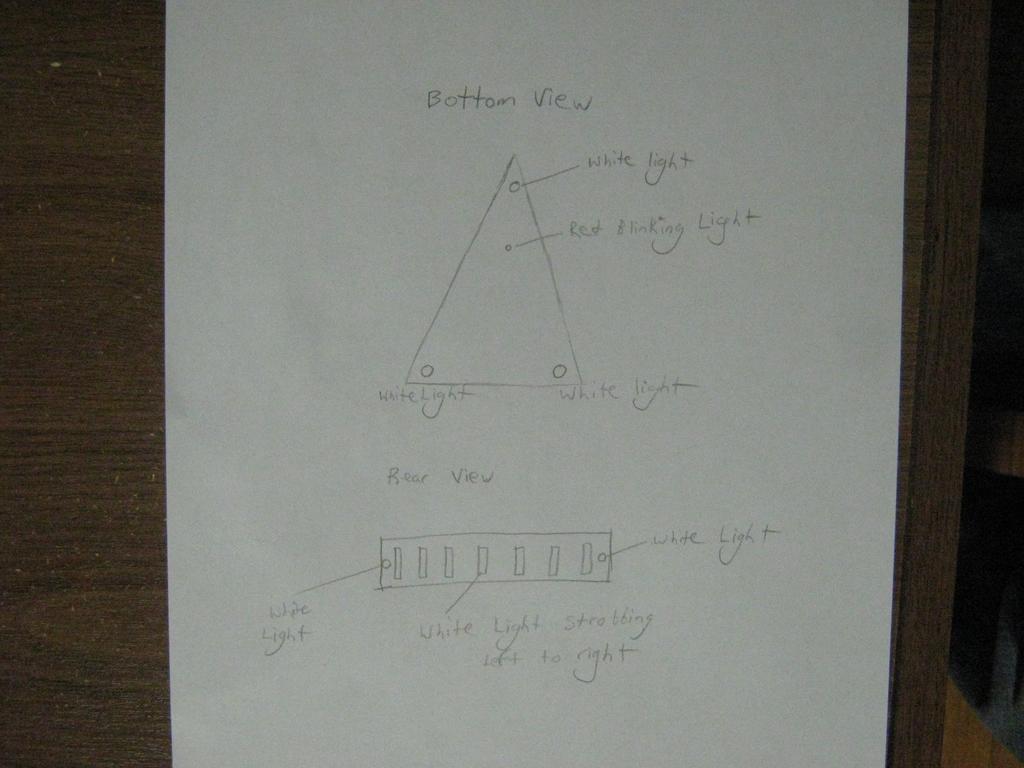 Bottom View
White light
Red Blinking Light
White Light
White light
Rear View
White Light
White
Light
White Light Strobbing
Left to right